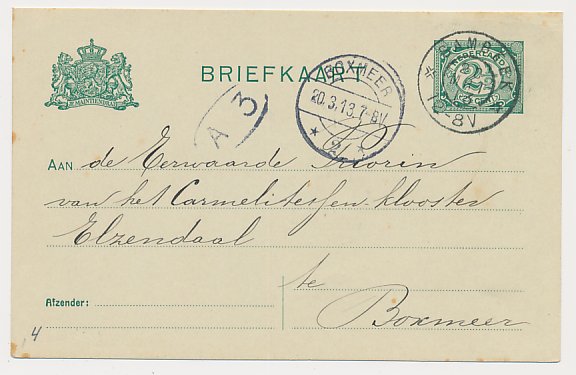 BRIEFKAART
JE MAINTIENDRAI
NEDERLAND
2½
BOXMEER
20.3.13.7-8V
2
7-8V
A 3
AAN de Eerwaarde Priorin
van het Carmelitessen klooster
Elzendaal
te
Afzender:
Boxmeer
4